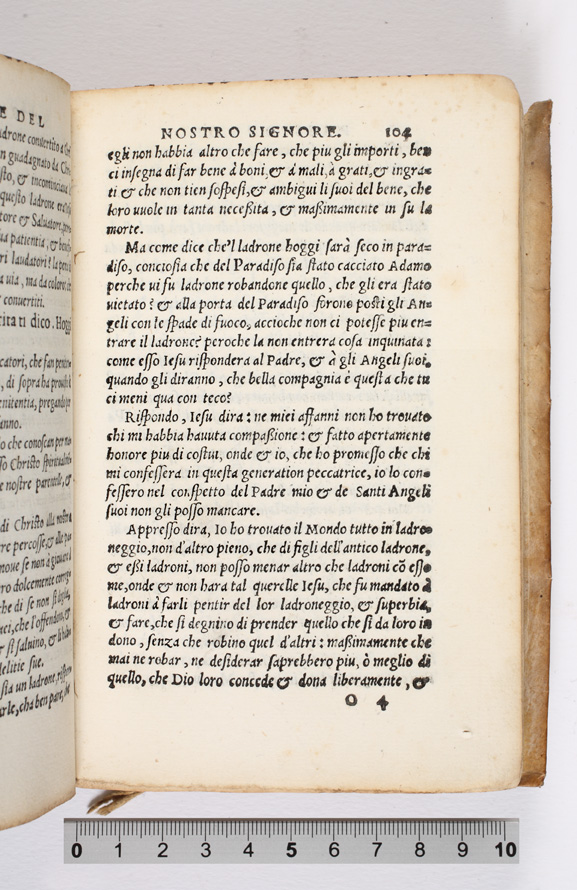 E DEL
adrone conuertito a
n guadagnato da
sto, & incontinente
questo ladrone
tore & Saluatore,
ua patientia, &
ri laudatori? la
a uia, ma da coloro
conuertiti.
cita ti dico. Hoggi
catori, che fan
, di sopra ha
nitentia, pregando
anno.
o che conoscan per
sso Christo
e nostre parentele, &
di Christo alla nostra
re percosse, &
moue se non à
ro dolcemente
he di se non si
aci, che l'offendono, &
& si saluino, &
delitie sue.
sia un ladrone,
arle, cha ben pare,
NOSTRO SIGNORE. 104
egli non habbia altro che fare, che piu gli importi, ben
ci insegna di far bene à boni, & à mali, à grati, & ingra-
ti & che non tien sospesi, & ambigui li suoi del bene, che
loro uuole in tanta necessita, & massimamente in su la
morte.
Ma come dice che'l ladrone hoggi sarà seco in para-
diso, conciosia che del Paradiso sia stato cacciato Adamo
perche ui fu ladrone robandone quello, che gli era stato
uietato? & alla porta del Paradiso forono posti gli An-
geli con le spade di fuoco, accioche non ci potesse piu en-
trare il ladrone? peroche la non entrera cosa inquinata:
come esso Iesu rispondera al Padre, & à gli Angeli suoi,
quando gli diranno, che bella compagnia è questa che tu
ci meni qua con teco?
Rispondo, Iesu dira: ne miei affanni non ho trouato
chi mi habbia hauuta compassione: & fatto apertamente
honore piu di costui, onde & io, che ho promesso che chi
mi confessera in questa generation peccatrice, io lo con-
fessero nel conspetto del Padre mio & de Santi Angeli
suoi non gli posso mancare.
Appresso dira, Io ho trouato il Mondo tutto in ladro-
neggio, non d'altro pieno, che di figli dell'antico ladrone,
& essi ladroni, non posso menar altro che ladroni cō esso
me, onde & non hara tal querelle Iesu, che fu mandato à
ladroni à farli pentir del lor ladroneggio, & superbia,
& fare, che si degnino di prender quello che si da loro in
dono, senza che robino quel d'altri: massimamente che
mai ne robar, ne desiderar saprebbero piu, ò meglio di
quello, che Dio loro concede & dona liberamente, &
O 4
0 1 2 3 4 5 6 7 8 9 10